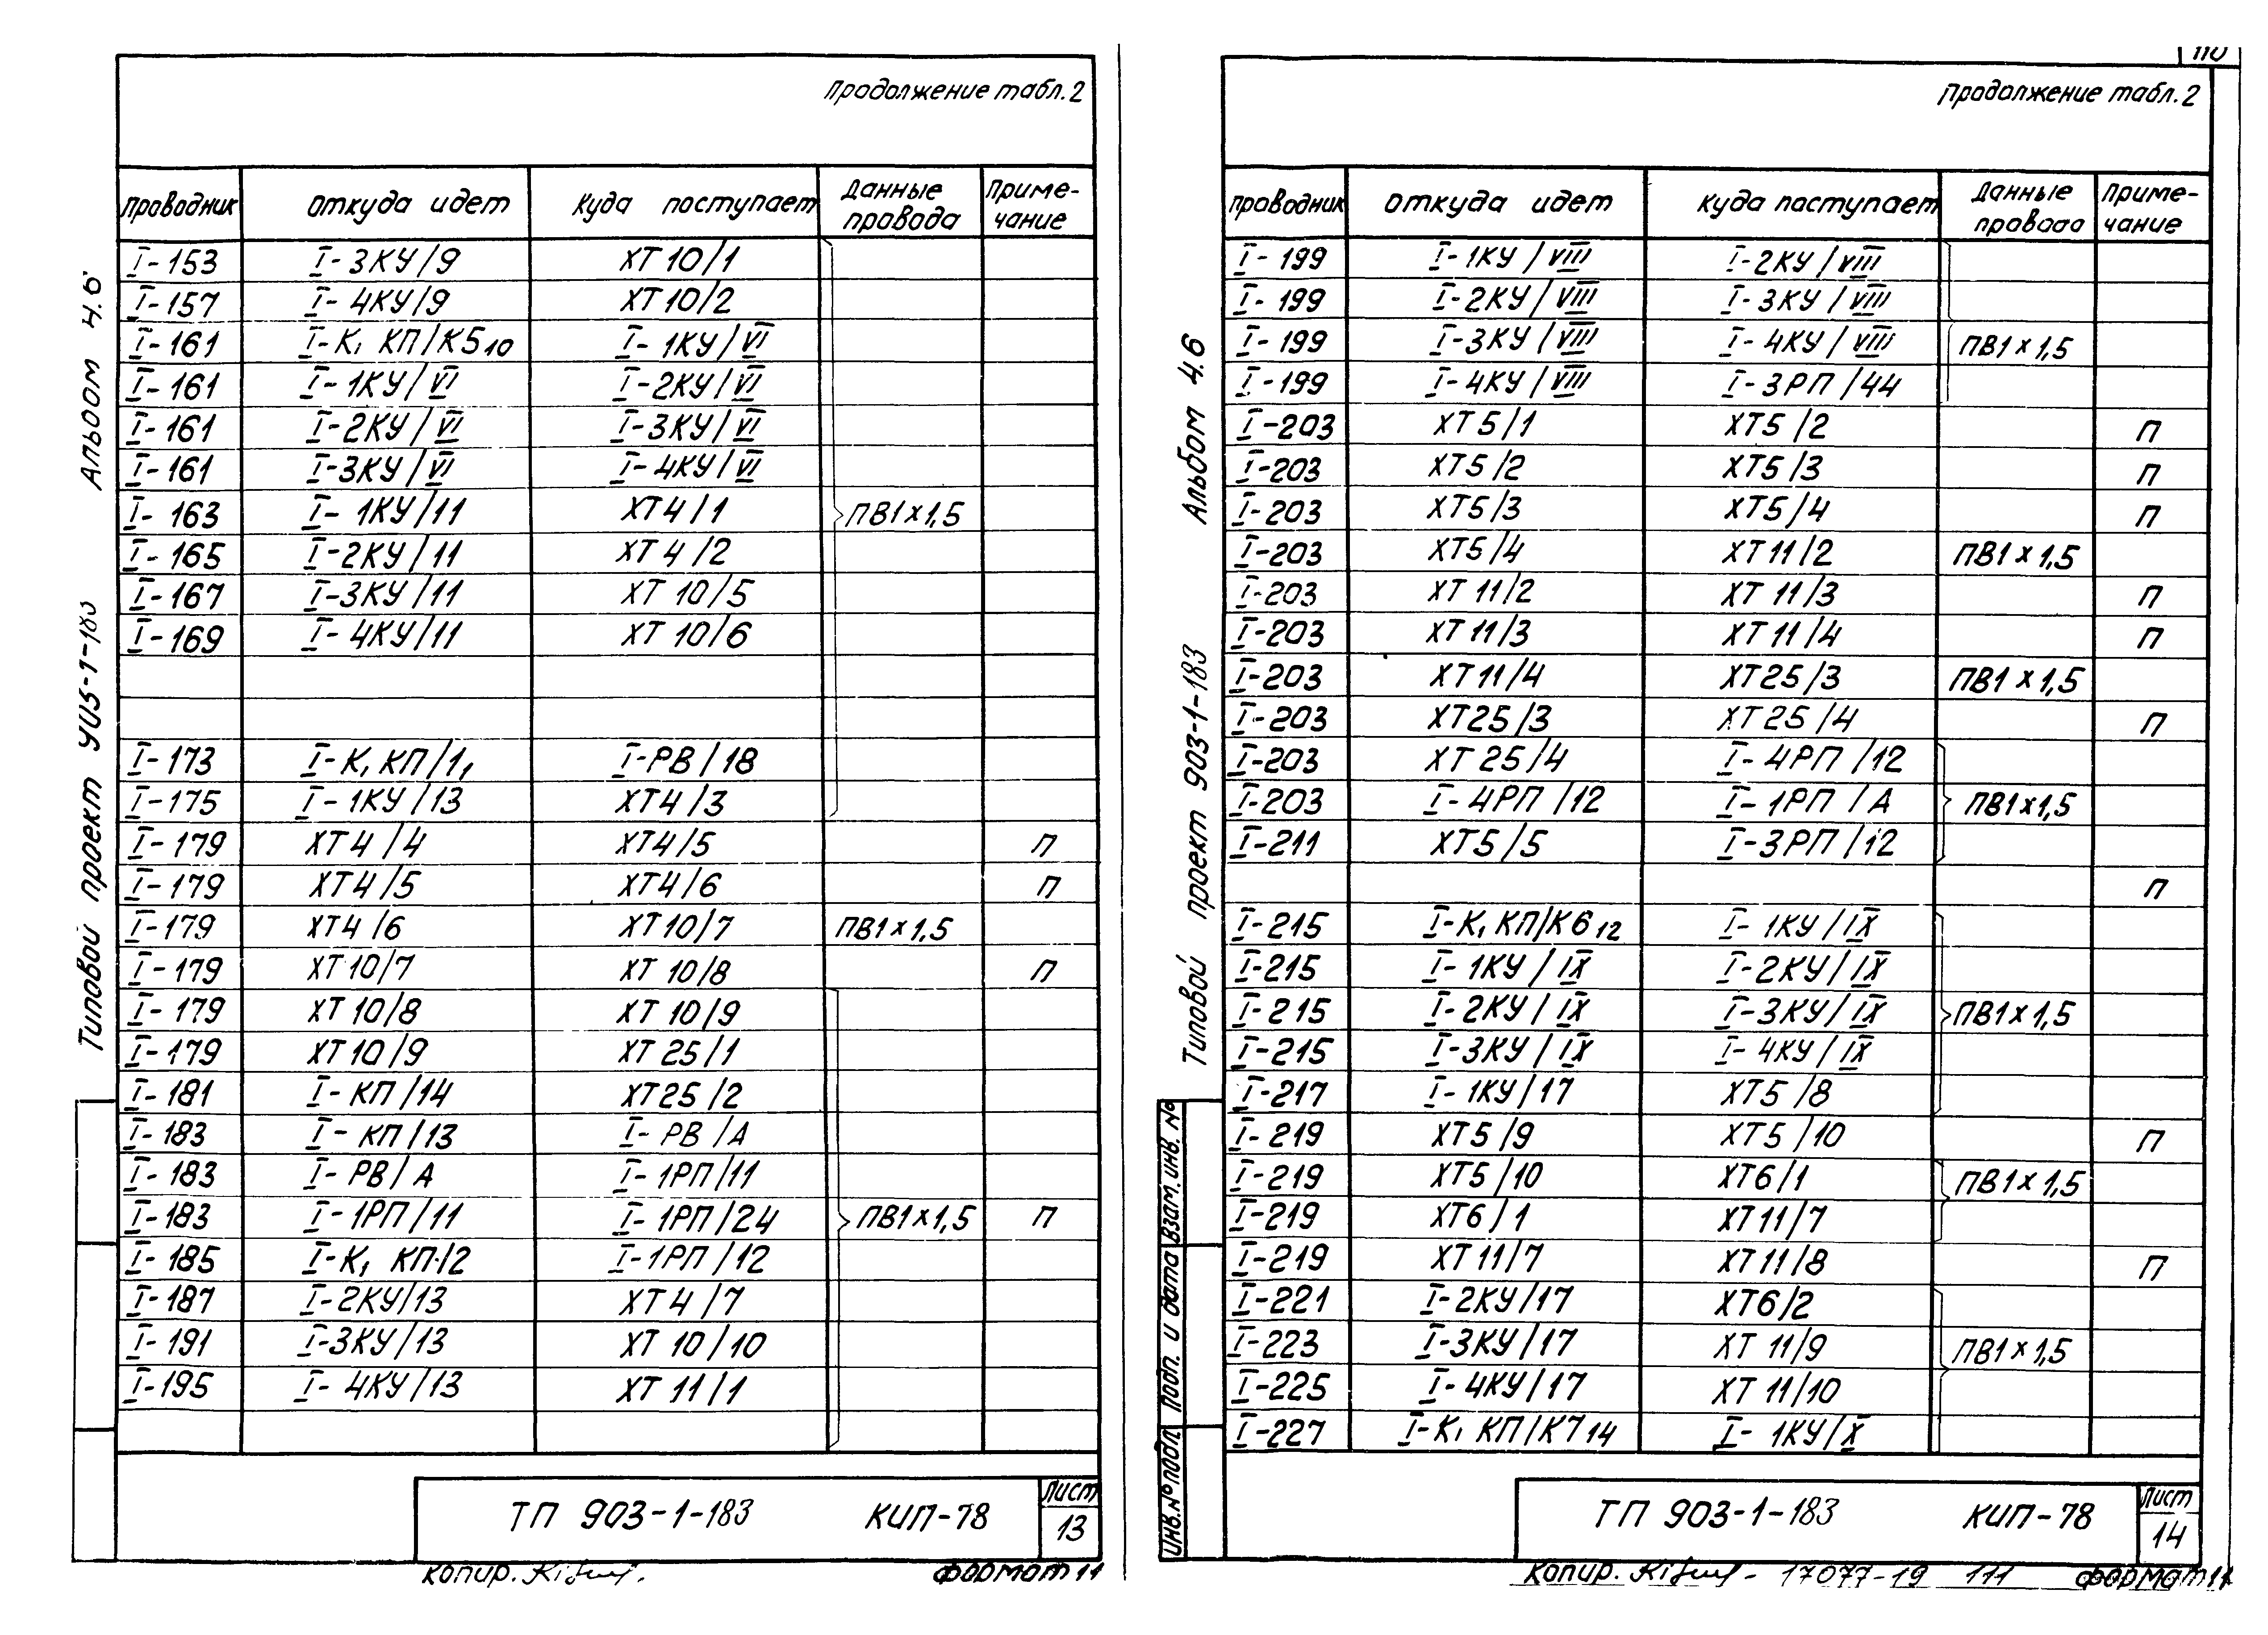 Продолжение табл.2
Проводник Откуда идет Куда поступает Данные провода Приме-чание
I-153 I-3КУ/9 ХТ10/1
I-157 I-4КУ/9 ХТ10/2
I-161 I-К1 КП/К5 10 I-1КУ/VI
I-161 I-1КУ/VI I-2КУ/VI
I-161 I-2КУ/VI I-3КУ/VI
I-161 I-3КУ/VI I-4КУ/VI
I-163 I-1КУ/11 ХТ4/1 ПВ1х1,5
I-165 I-2КУ/11 ХТ4/2
I-167 I-3КУ/11 ХТ10/5
I-169 I-4КУ/11 ХТ10/6
I-173 I-К1 КП/1, I-РВ/18
I-175 I-1КУ/13 ХТ4/3
I-179 ХТ4/4 ХТ4/5 П
I-179 ХТ4/5 ХТ4/6 П
I-179 ХТ4/6 ХТ10/7 ПВ1х1,5
I-179 ХТ10/7 ХТ10/8 П
I-179 ХТ10/8 ХТ10/9
I-179 ХТ10/9 ХТ25/1
I-181 I-КП/14 ХТ25/2
I-183 I-КП/13 I-РВ/А
I-183 I-РВ/А I-1РП/11
I-183 I-1РП/11 I-1РП/24 ПВ1х1,5 П
I-185 I-К1 КП/2 I-1РП/12
I-187 I-2КУ/13 ХТ4/7
I-191 I-3КУ/13 ХТ10/10
I-195 I-4КУ/13 ХТ11/1
ТП 903-1-183 КИП-78 Лист 13
Копир. Формат 11
Типовой проект 903-1-183 Альбом 4.6
110
Продолжение табл.2
Проводник Откуда идет Куда поступает Данные провода Приме-чание
I-199 I-1КУ/VIII I-2КУ/VIII
I-199 I-2КУ/VIII I-3КУ/VIII
I-199 I-3КУ/VIII I-4КУ/VIII ПВ1х1,5
I-199 I-4КУ/VIII I-3РП/44
I-203 ХТ5/1 ХТ5/2 П
I-203 ХТ5/2 ХТ5/3 П
I-203 ХТ5/3 ХТ5/4 П
I-203 ХТ5/4 ХТ11/2 ПВ1х1,5
I-203 ХТ11/2 ХТ11/3 П
I-203 ХТ11/3 ХТ11/4 П
I-203 ХТ11/4 ХТ25/3 ПВ1х1,5
I-203 ХТ25/3 ХТ25/4 П
I-203 ХТ25/4 I-4РП/12
I-203 I-4РП/12 I-1РП/А ПВ1х1,5
I-211 ХТ5/5 I-3РП/12
П
I-215 I-К1 КП/К6 12 I-1КУ/IX
I-215 I-1КУ/IX I-2КУ/IX
I-215 I-2КУ/IX I-3КУ/IX ПВ1х1,5
I-215 I-3КУ/IX I-4КУ/IX
I-217 I-1КУ/17 ХТ5/8
I-219 ХТ5/9 ХТ5/10 П
I-219 ХТ5/10 ХТ6/1 ПВ1х1,5
I-219 ХТ6/1 ХТ11/7
I-219 ХТ11/7 ХТ11/8 П
I-221 I-2КУ/17 ХТ6/2
I-223 I-3КУ/17 ХТ11/9 ПВ1х1,5
I-225 I-4КУ/17 ХТ11/10
I-227 I-К1 КП/К7 14 I-1КУ/X
ТП 903-1-183 КИП-78 Лист 14
Копир. 17077-19 111 Формат 11
Типовой проект 903-1-183 Альбом 4.6
Инв.№подл. Подп. и дата Взам.инв.№